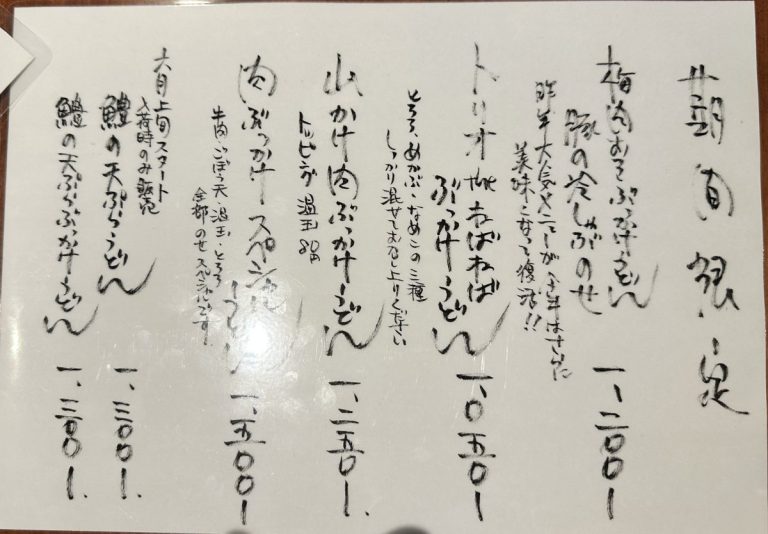 期間限定
梅肉おろしぶっかけうどん
豚の冷しゃぶのせ 一、二〇〇ー
昨年大人気メニューが今年はさらに
美味しくなって復活!!
トリオ the ねばねば
ぶっかけうどん 一、〇五〇ー
とろろ、めかぶ、なめこの三種
しっかり混ぜてお召し上りください
山かけ肉ぶっかけうどん 一、二五〇ー
トッピング 温玉 80円
肉ぶっかけスペシャルうどん 一、五〇〇ー
牛肉・ごぼう天・温玉・とろろ
全部のせスペシャルです。
六月上旬スタート
入荷時のみ販売
鱧の天ぷらうどん 一、三〇〇ー
鱧の天ぷらぶっかけうどん 一、三〇〇ー